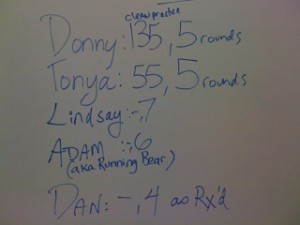 clean practice
Donny: 135, 5 rounds
Tonya: 55, 5 rounds
Lindsay: -, 7
ADAM: -, 6
(aka Running Bear)
DAN: -, 4 as Rx'd